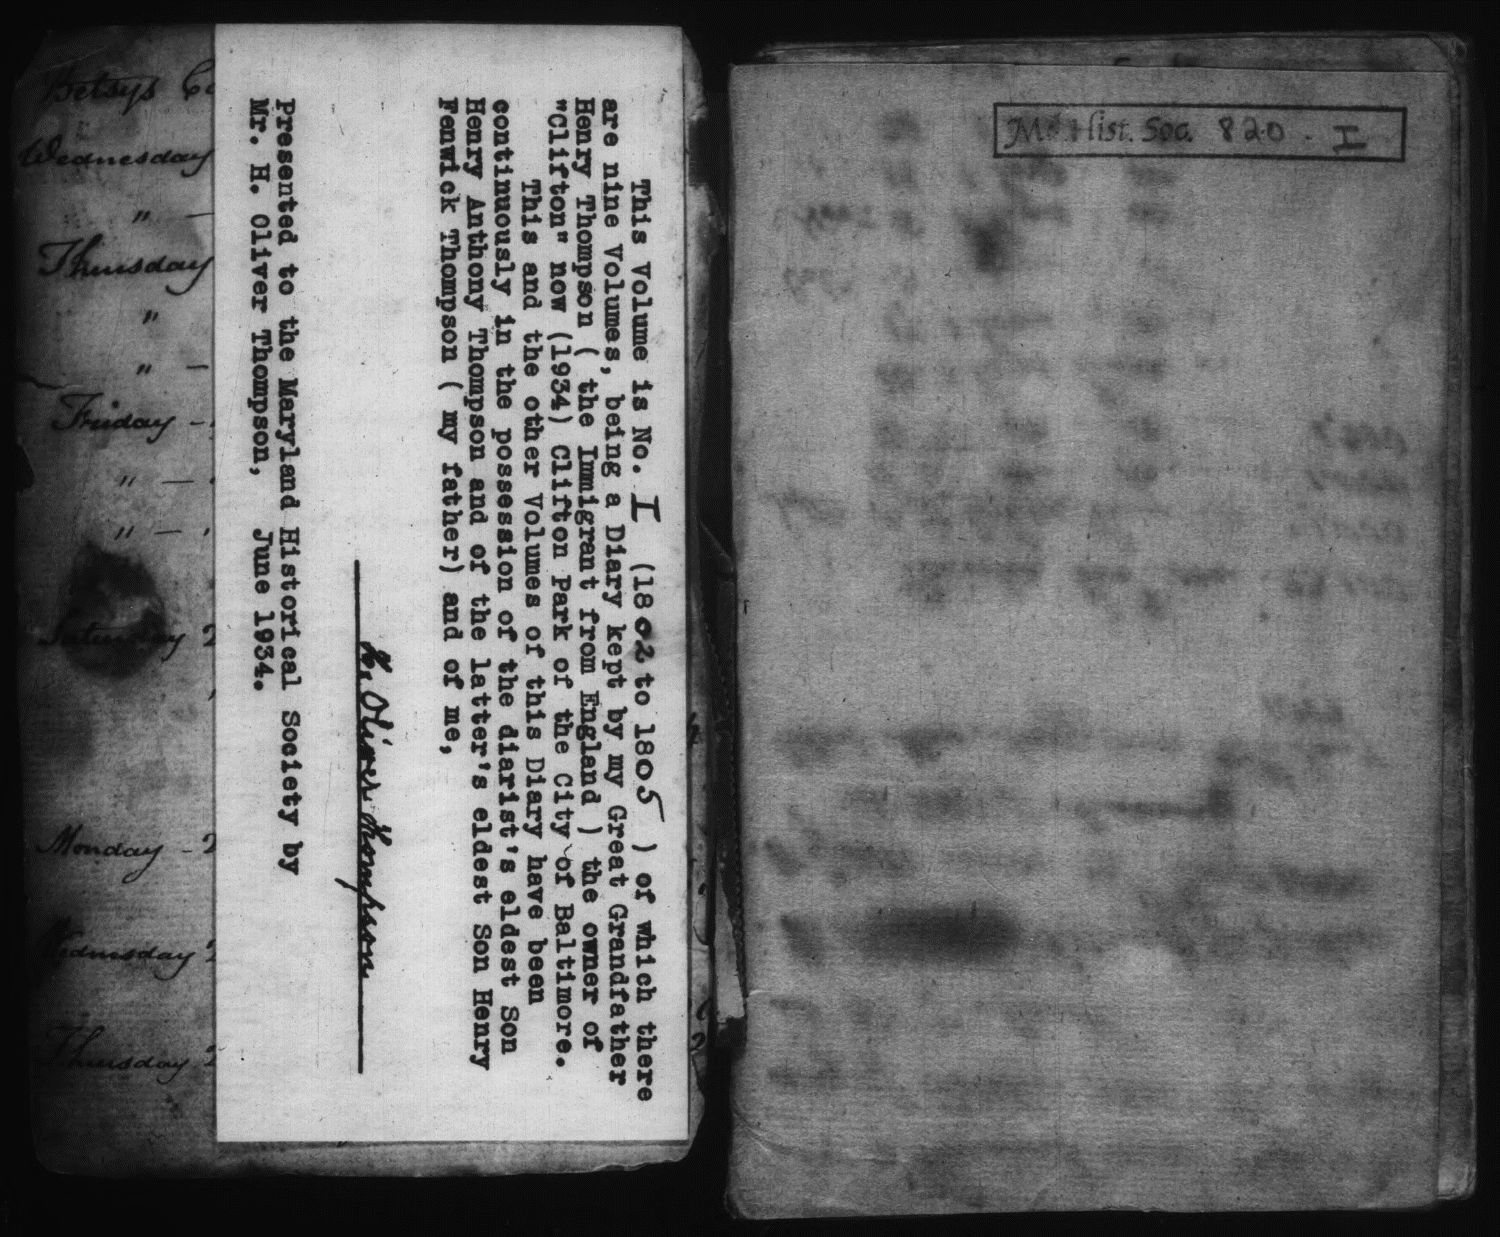 Betsys
Wednesday
" —
Thursday
"
" —
Friday -
" —
" —
Saturday 2
Monday - 2
Wednesday 2
Thursday 2
This Volume is No. I (1802 to 1805 ) of which there
are nine Volumes, being a Diary kept by my Great Grandfather
Henry Thompson ( the Immigrant from England ) the owner of
"Clifton" now (1934) Clifton Park of the City of Baltimore.
This and the other Volumes of this Diary have been
continuously in the possession of the diarist's eldest Son
Henry Anthony Thompson and of the latter's eldest Son Henry
Fenwick Thompson ( my father) and of me,
H. Oliver Thompson
Presented to the Maryland Historical Society by
Mr. H. Oliver Thompson, June 1934.
Md. Hist. Soc. 820 - I